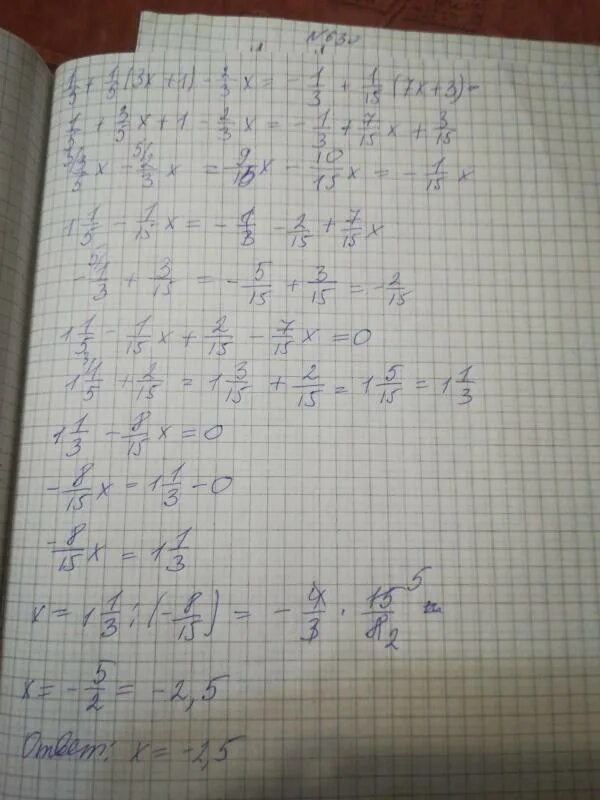 №63
1/5 + 1/5 (3x+1) - 2/3 x = - 1/3 + 1/15 (7x+3) -
1/5 + 3/5 x + 1 - 2/3 x = - 1/3 + 7/15 x + 3/15
3/5 x - 2/3 x = 9/15 x - 10/15 x = - 1/15 x
1 1/5 - 1/15 x = - 2/15 + 7/15 x
- 1/3 + 3/15 = - 5/15 + 3/15 = - 2/15
1 1/5 - 1/15 x + 2/15 - 7/15 x = 0
1 1/5 + 2/15 = 1 3/15 + 2/15 = 1 5/15 = 1 1/3
1 1/3 - 8/15 x = 0
- 8/15 x = 1 1/3 - 0
- 8/15 x = 1 1/3
x = 1 1/3 : (- 8/15) = - 4/3 · 15/8 5 2
x = - 5/2 = -2,5
Ответ: x = -2,5